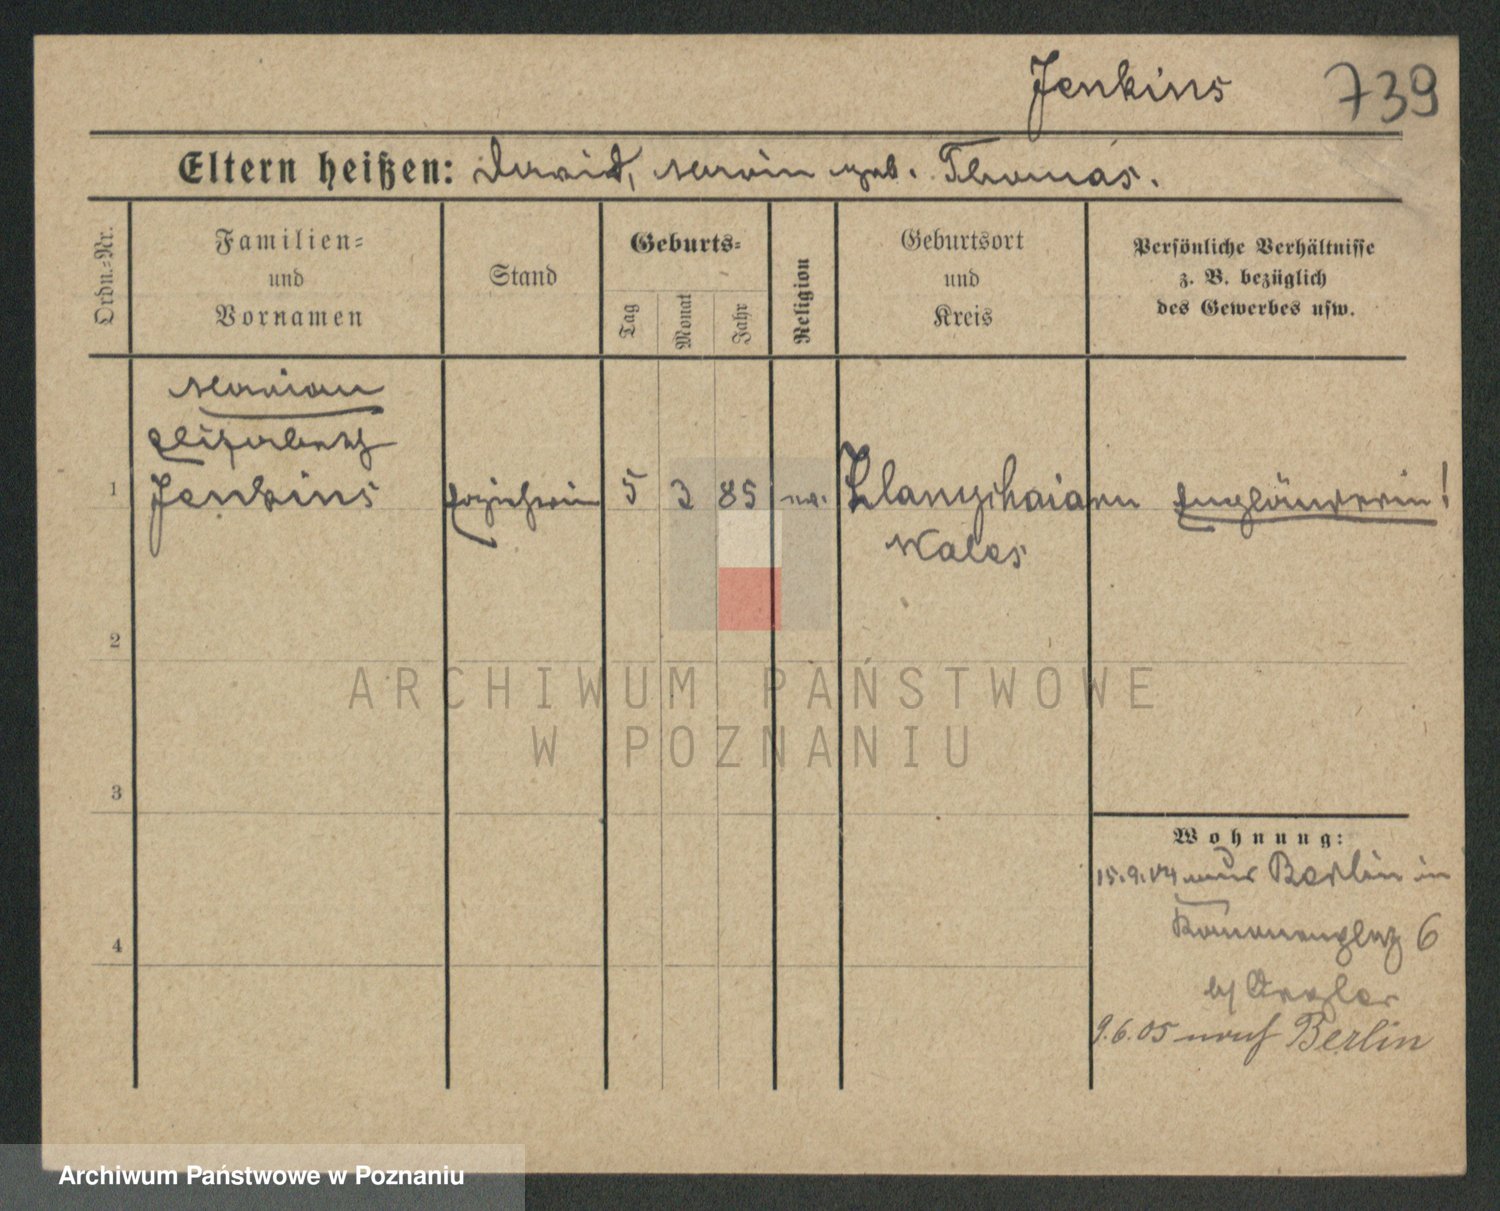 Jenkins 739
Eltern heißen: David, Maria geb. Thomas.
Ordn.-Nr.
Familien-
und
Vornamen
Stand
Geburts-
Tag
Monat
Jahr
Religion
Geburtsort
und
Kreis
Persönliche Verhältnisse
z. B. bezüglich
des Gewerbes usw.
Marian
Elisabeth
1 Jenkins Erzieherin 5 3 85 ev. Engländerin!
Wales
2
3
4
Wohnung:
15.9.04 aus Berlin in
6
b/
9.6.05 nach Berlin
ARCHIWUM PAŃSTWOWE
W POZNANIU
Archiwum Państwowe w Poznaniu